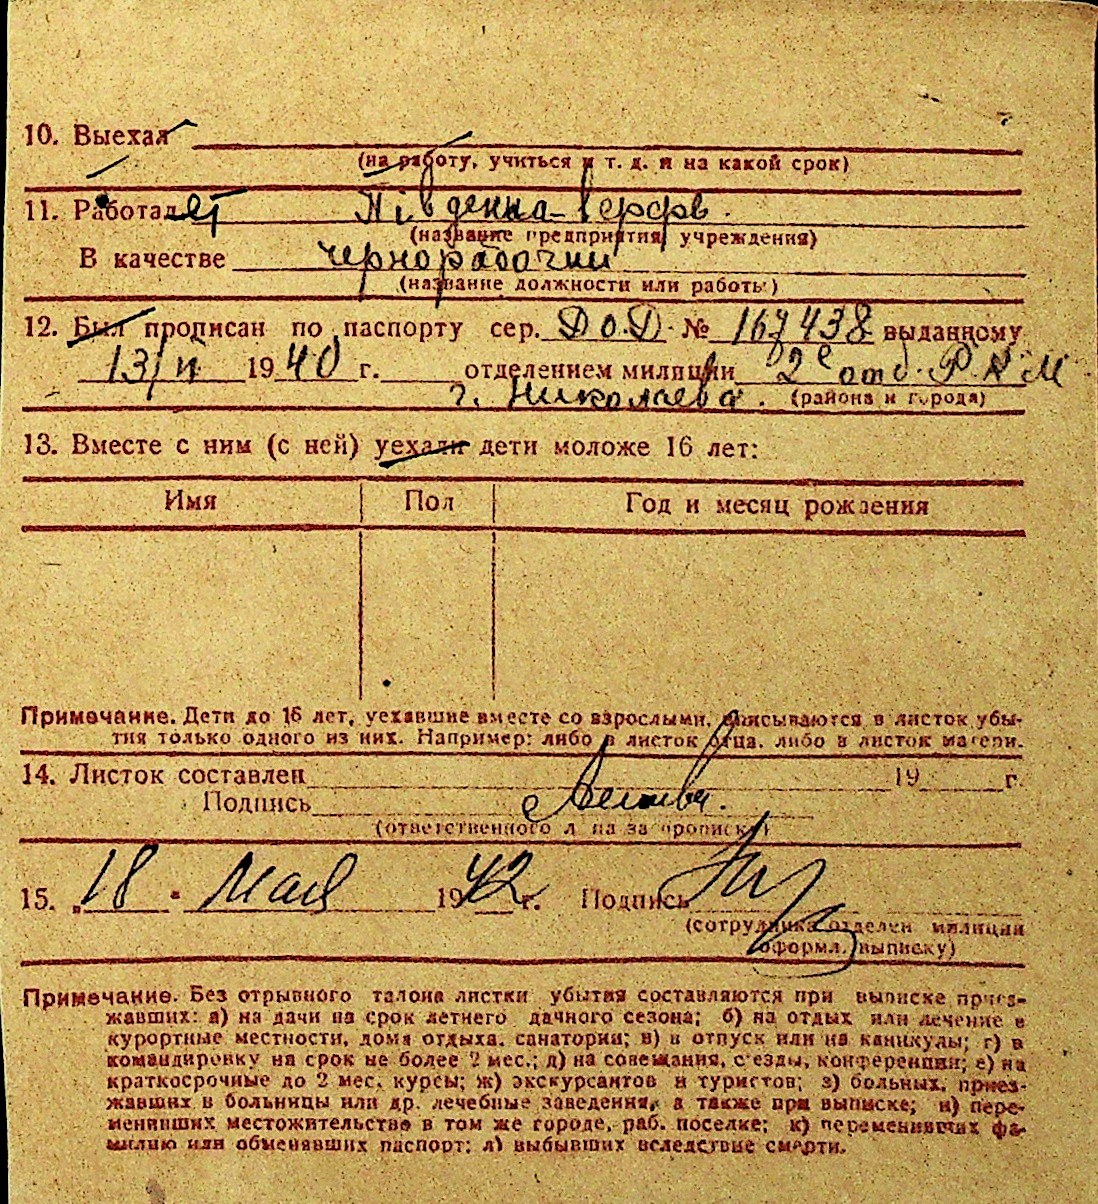 10. Выехал
(на работу, учиться и т. д. и на какой срок)
11. Работает Південна верфв.
(название предприятия, учреждения)
В качестве чернорабочий
(название должности или работы)
12. Был прописан по паспорту сер. ДОД. № 167438 выданному
13/II 1940 г. отделением милиции 2е отд. Р.К.М
г. Николаева. (района и города)
13. Вместе с ним (с ней) уехали дети моложе 16 лет:
Имя Пол Год и месяц рождения
Примечание. Дети до 16 лет, уехавшие вместе со взрослыми, вписываются в листок убы-
тия только одного из них. Например: либо в листок отца, либо в листок матери.
14. Листок составлен 19 г.
Подпись
(ответственного лица за прописку)
15. „18" Мая 1942 г. Подпись
(сотрудника отделен милиции
оформл. выписку)
Примечание. Без отрывного талона листки убытия составляются при выписке приез-
жавших: а) на дачи на срок летнего дачного сезона; б) на отдых или лечение в
курортные местности, дома отдыха, санатории; в) в отпуск или на каникулы; г) в
командировку на срок не более 2 мес.; д) на совещания, съезды, конференции; е) на
краткосрочные до 2 мес. курсы; ж) экскурсантов и туристов; з) больных, приез-
жавших в больницы или др. лечебные заведения, а также при выписке; и) пере-
менивших местожительство в том же городе, раб. поселке; к) переменивших фа-
милию или обменявших паспорт; л) выбывших вследствие смерти.